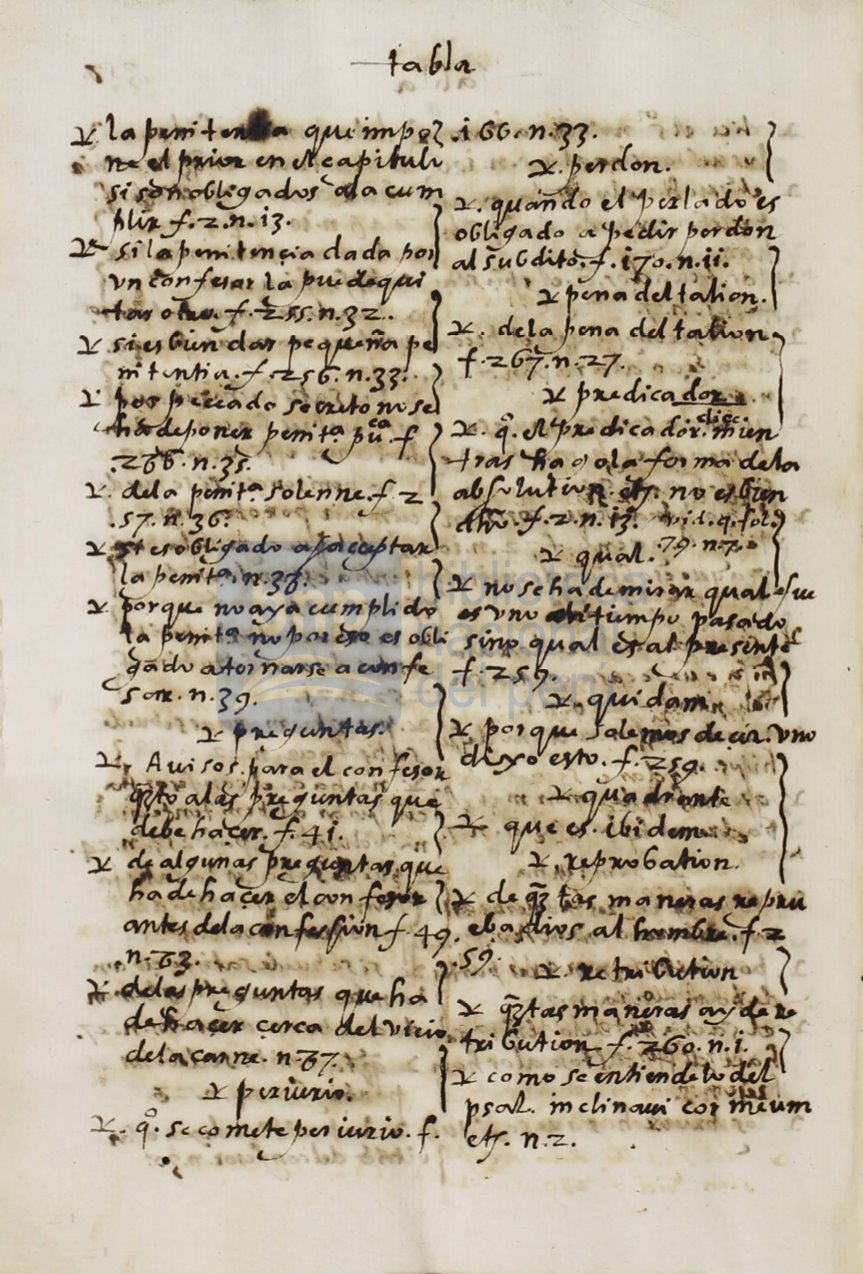 tabla
la penitencia que impo
ne el prior en el capitulo
si son obligados a la cum
plir f. 2. n. 13.
si la penitençia dada por
vn confesor la puede qui
tar otro. f. 255. n. 32.
si es bien dar pequeña pe
nitentia. f. 256. n. 33.
por peccado secreto no se
ha de poner penitª puᶜᵃ. f
266. n. 35.
de la penitª solenne. f 2
57. n. 36.
si es obligado a acceptar
la penitª. n. 38.
porque no aya cumplido
la penitª no por eso es obli
gado a tornarse a confe
sar. n. 39.
preguntas.
Auisos para el confesor
qᵗᵒ a las preguntas que
debe haçer. f. 41.
de algunas preguntas que
ha de haçer el confesor
antes de la confession f. 49.
n. 63.
de las preguntas que ha
de haçer çerca del viçio
de la carne. n 67.
periurio.
qº. se comete periurio. f.
166. n. 33.
perdon.
quando el perlado es
obligado a pedir perdon
al subdito. f. 170. n. 11.
pena del talion.
de la pena del talion
f. 267. n. 27.
predicador.
qº. el predicador. diçe mien
tras hago la forma de la
absolution. etş. no es bien
dho. f. 2. n. 13. vid. q. fol.
79. n. 7.
qual.
no se ha de mirar qual fue
es vno tiempo pasado
sino qual es al presente
f. 259.
quidam
porque solemos deçir. vno
dixo esto. f. 259.
quadrante
que es. ibidem
reprobation.
de qᵗas maneras repru
eba dios al hombre. f 2
59.
retribution
qᵗas maneras ay de re
tribution f. 260. n. 1.
como se entiende lo del
psal. inclinaui cor meum
etş. n. 2.